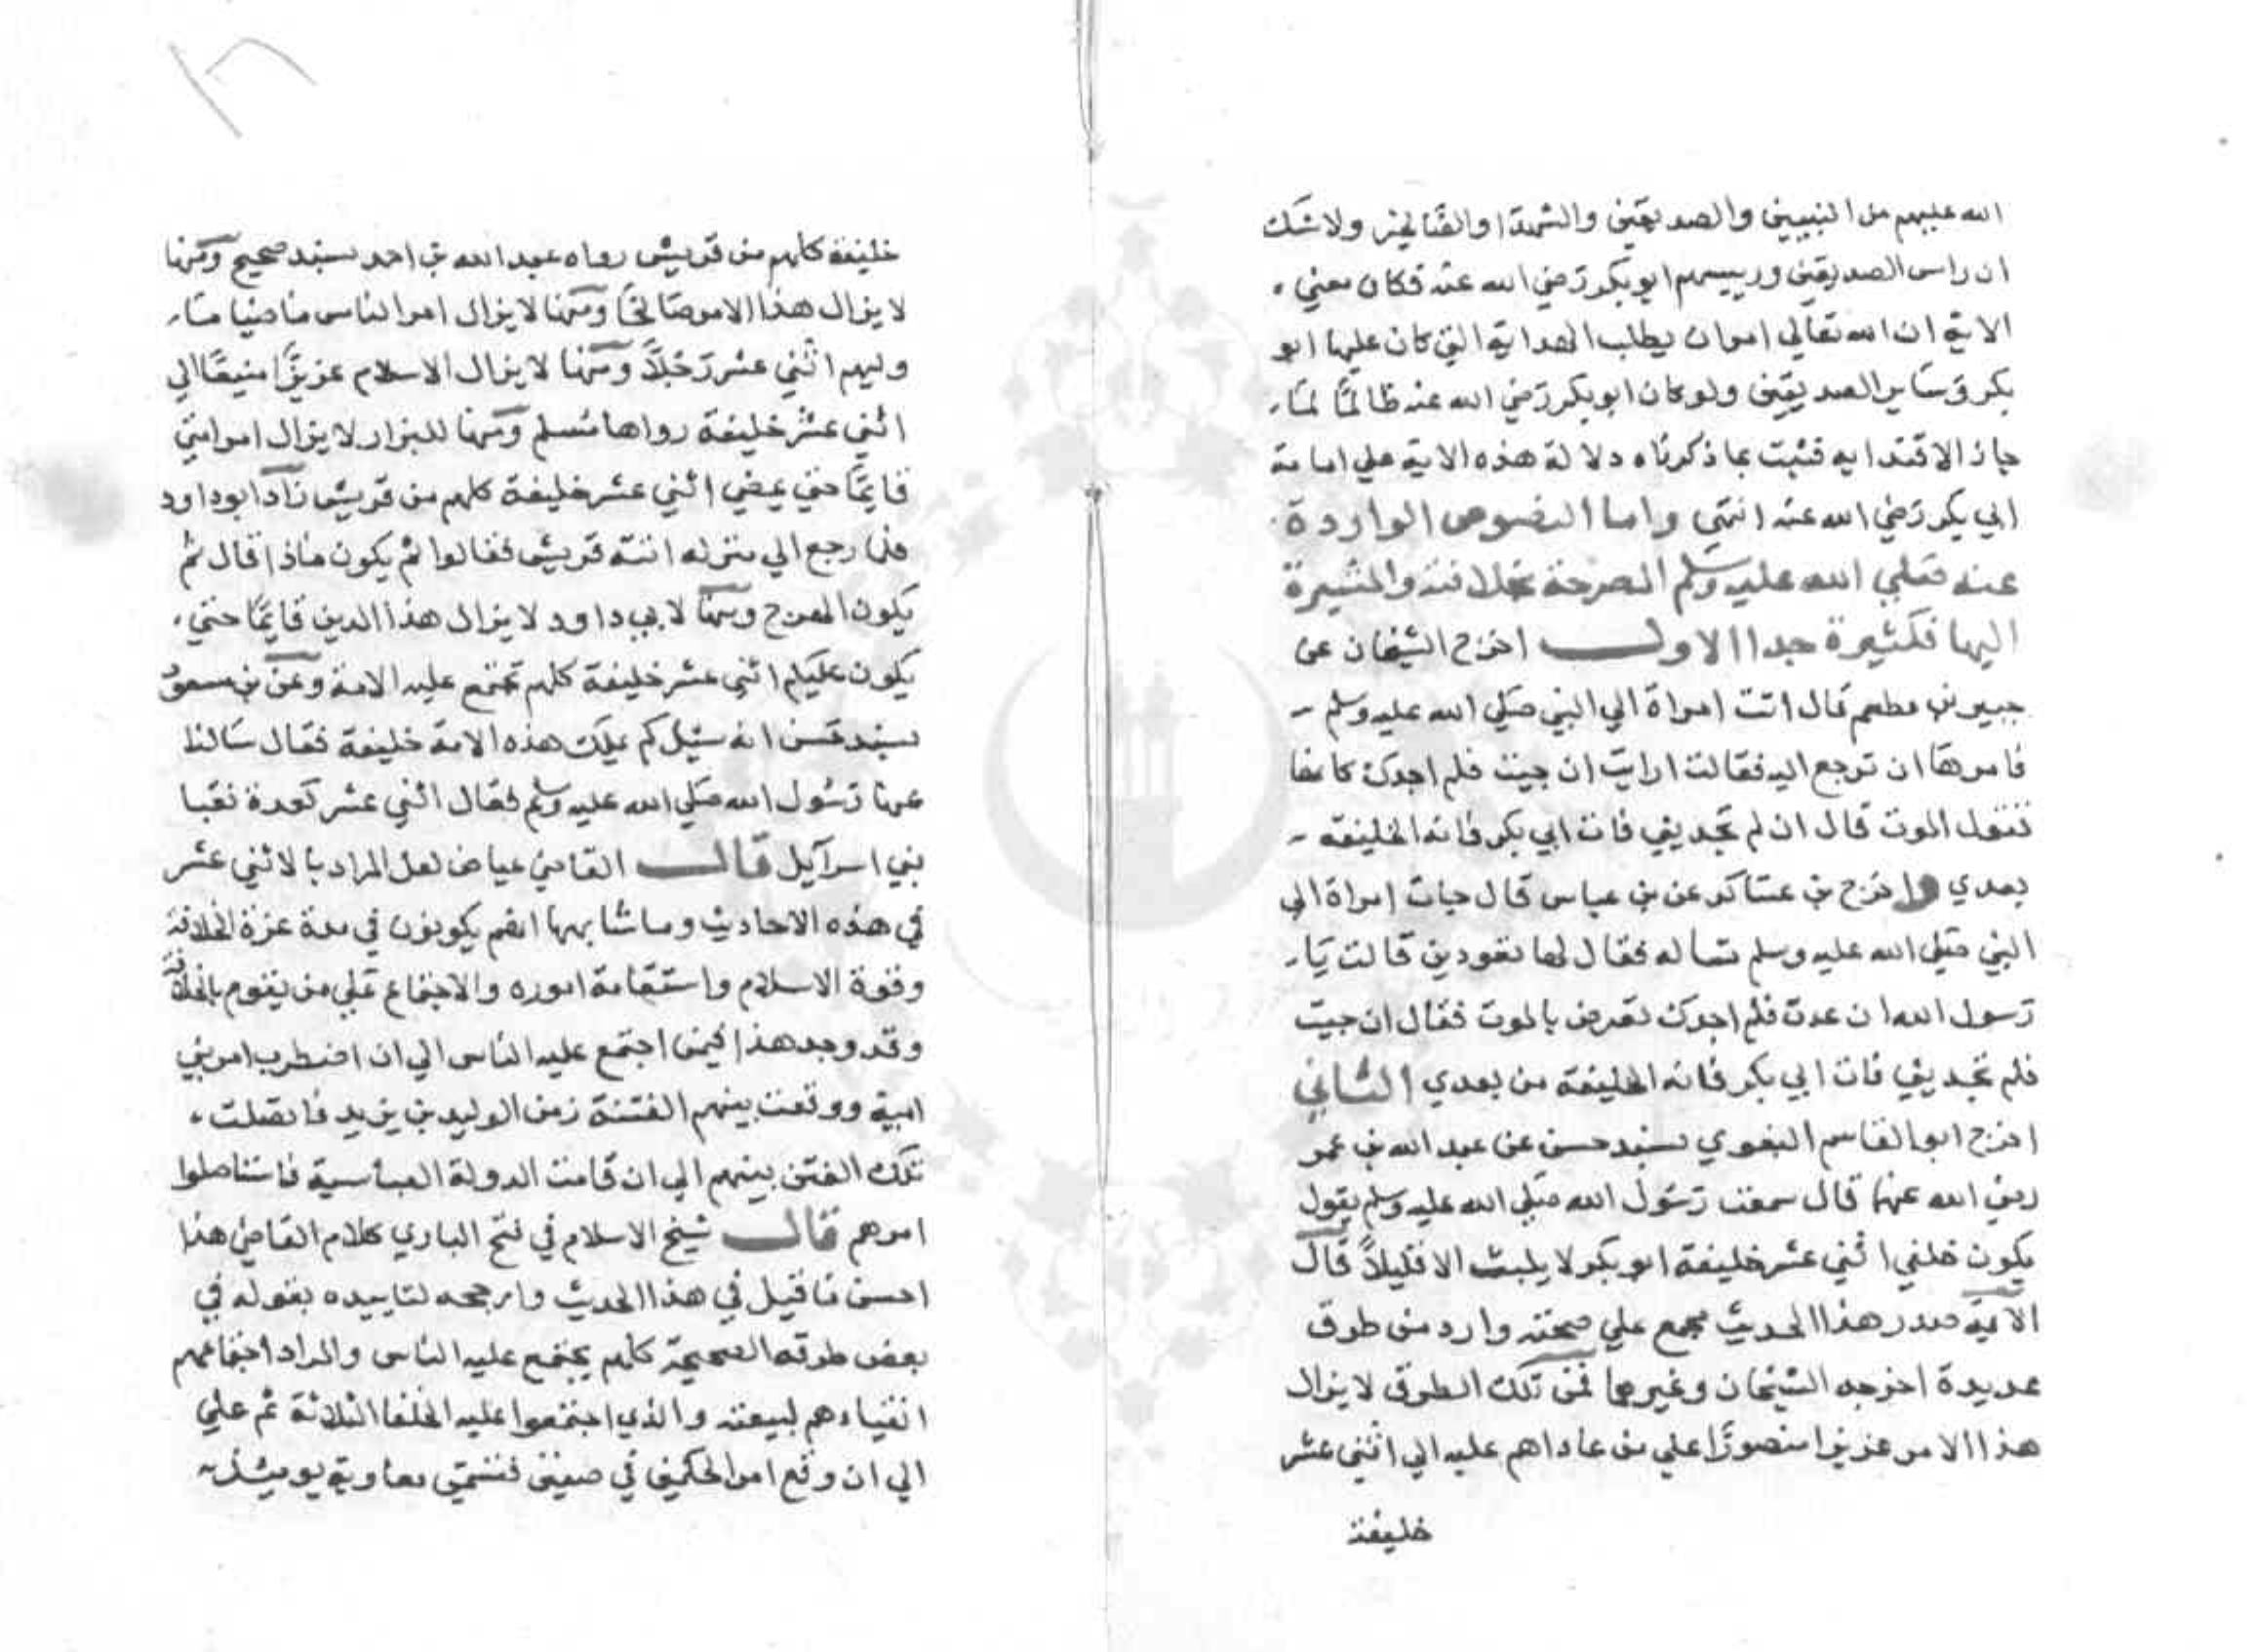 الله عليهم من النبيين والصديقين والشهدا والصالحين ولا شك
ان راس الصديقين ورييسهم ابو بكر رضي الله عنه فكان معني
الاية ان الله تعالي امر ان يطلب الهداية التي كان عليها ابو
بكر وساير الصديقين ولو كان ابو بكر رضي الله عنه ظالما لما
جاز الاقتدا به فثبت بما ذكرناه دلالة هذه الاية علي امامة
ابي بكر رضي الله عنه انتهي واما النصوص الواردة
عنه صلي الله عليه وسلم المصرحة بخلافته والمشيرة
اليها فكثيرة جدا الاول اخرج الشيخان عن
جبير بن مطعم قال اتت امراة الي النبي صلي الله عليه وسلم
فامرها ان ترجع اليه فقالت ارايت ان جيت فلم اجدك كانها
تقول الموت قال ان لم تجديني فات ابي بكر فانه الخليفة
بعدي واخرج بن عساكر عن بن عباس قال جات امراة الي
النبي صلي الله عليه وسلم تساله فقال لها تعودين قالت يا
رسول الله ان عدت فلم اجدك تعرض بالموت فقال ان جيت
فلم تجديني فات ابي بكر فانه الخليفة من بعدي الثاني
اخرج ابو القاسم البغوي بسند حسن عن عبد الله بن عمر
رضي الله عنهما قال سمعت رسول الله صلي الله عليه وسلم يقول
يكون خلفي اثني عشر خليفة ابو بكر لا يلبث الا قليلا قال
الايمة صدر هذا الحديث مجمع علي صحته وارد من طرق
عديدة اخرجه الشيخان وغيرهما فمن تلك الطرق لا يزال
هذا الامر عزيزا منصورا علي من عاداهم عليه الي اثني عشر
خليفة
خليفة كلهم من قريش رواه عبد الله بن احمد بسند صحيح ومنها
لا يزال هذا الامر صالحا ومنها لا يزال امر الناس ماضيا ما
وليهم اثني عشر رجلا ومنها لا يزال الاسلام عزيزا منيعا الي
اثني عشر خليفة رواها مسلم ومنها للبزار لا يزال امر امتي
قايما حتي يمضي اثني عشر خليفة كلهم من قريش زاد ابو داود
فلما رجع الي منزله اتته قريش فقالوا ثم يكون ماذا قال ثم
يكون الهرج ومنها لابي داود لا يزال هذا الدين قايما حتي
يكون عليكم اثني عشر خليفة كلهم تجتمع عليه الامة وعن بن مسعود
بسند حسن انه سيل كم يملك هذه الامة خليفة فقال سالنا
عنها رسول الله صلي الله عليه وسلم فقال اثني عشر كعدة نقبا
بني اسرآيل قال القاضي عياض لعل المراد بالاثني عشر
في هذه الاحاديث وما شابهها انهم يكونون في مدة عزة الخلافة
وقوة الاسلام واستقامة اموره والاجتماع علي من يقوم بالخلافة
وقد وجد هذا فيمن اجتمع عليه الناس الي ان اضطرب امر بني
امية ووقعت بينهم الفتنة زمن الوليد بن يزيد فاتصلت
تلك الفتن بينهم الي ان قامت الدولة العباسية فاستاصلوا
امرهم قال شيخ الاسلام في فتح الباري كلام القاضي هذا
احسن ما قيل في هذا الحديث وارجحه لتاييده بقوله في
بعض طرقه الصحيحة كلهم يجتمع عليه الناس والمراد اجتماعهم
انقيادهم لبيعته والذي اجتمعوا عليه الخلفا الثلاثة ثم علي
الي ان وقع امر الحكمين في صفين فتسمي معاوية يوميذ